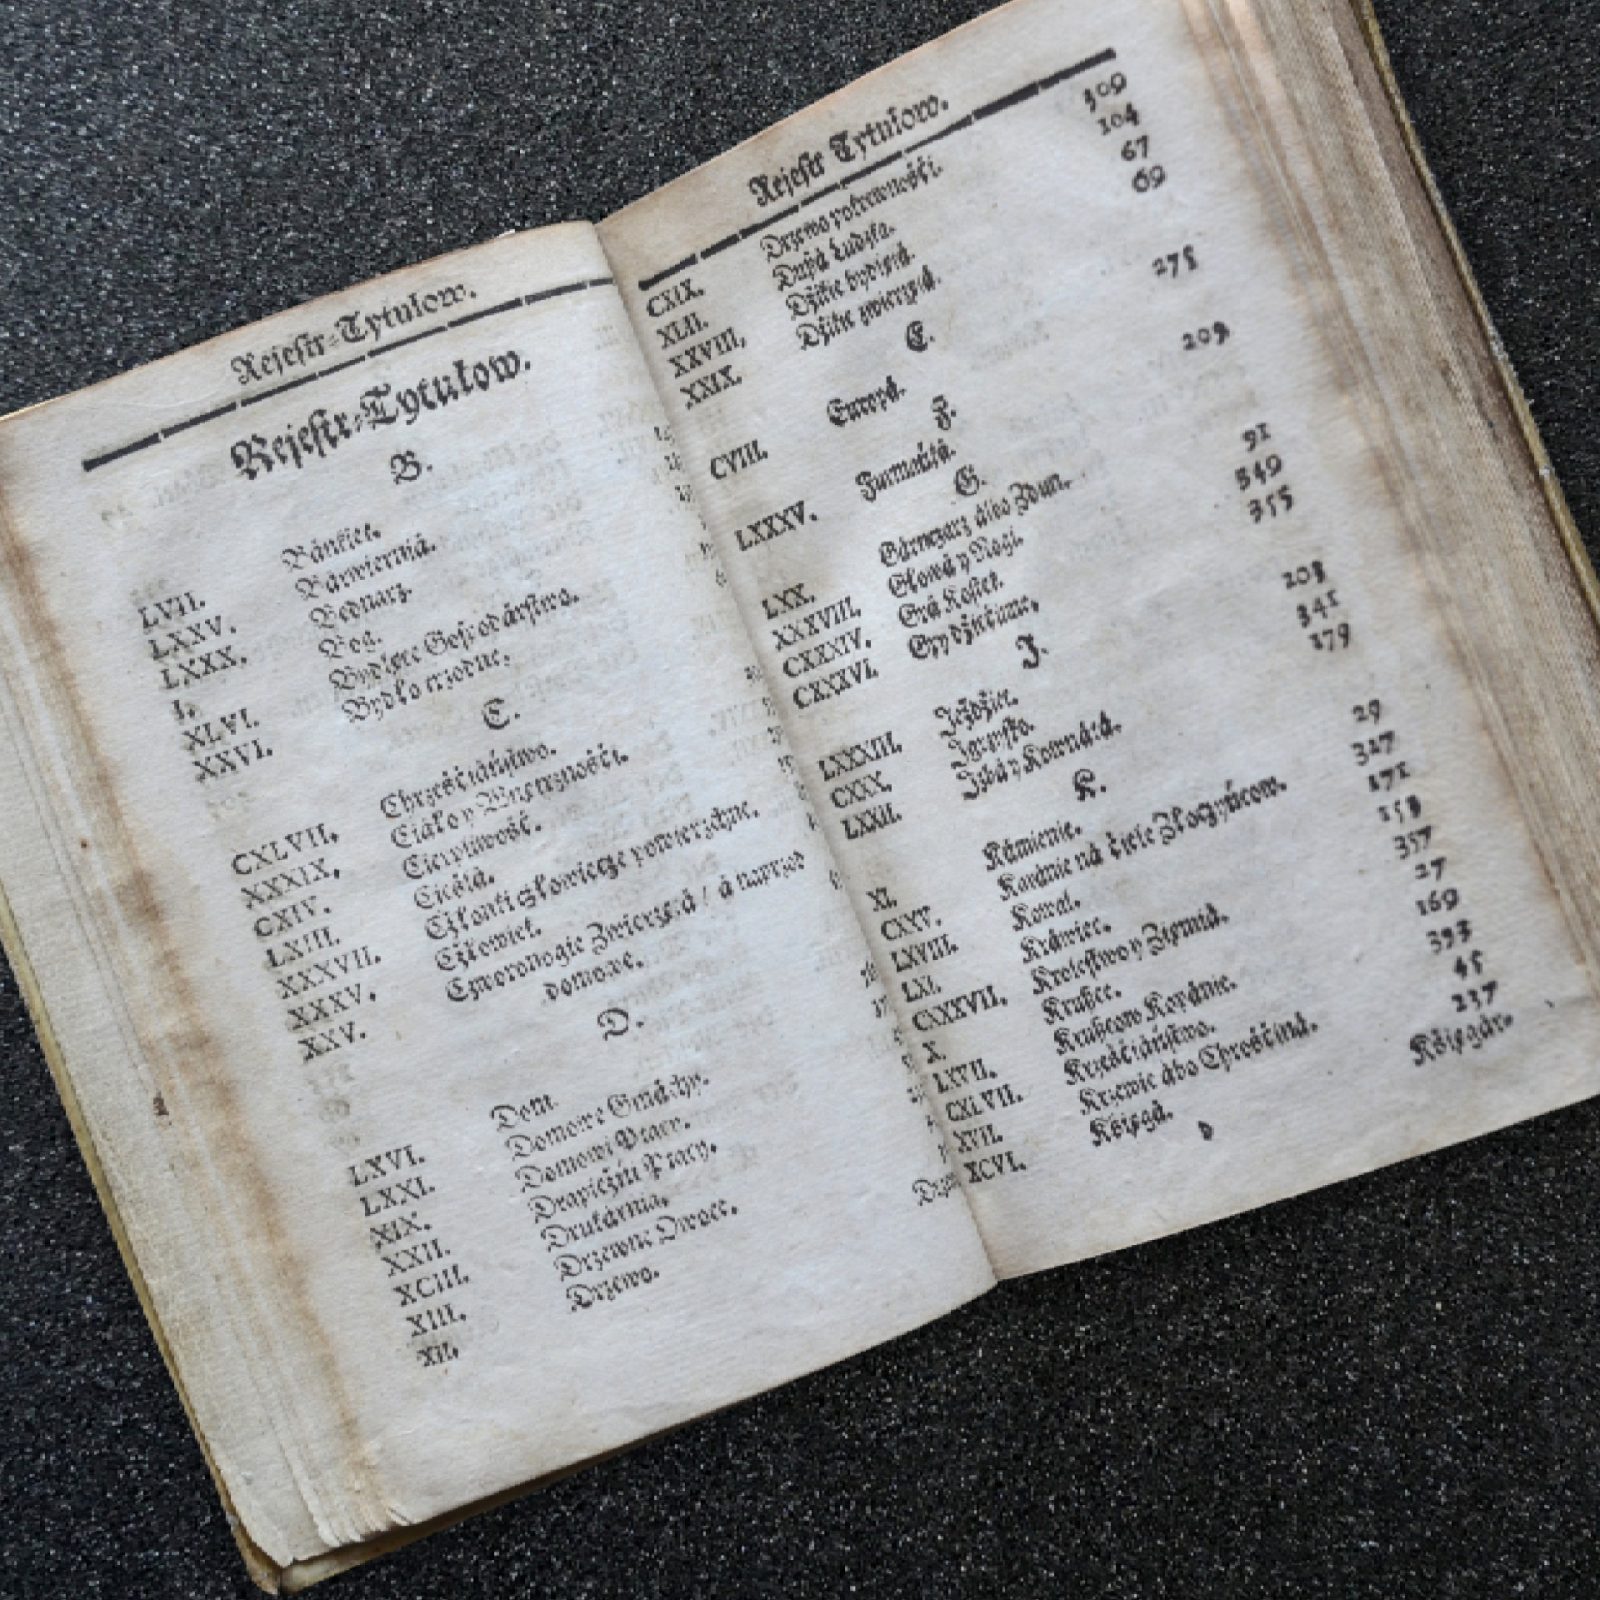 Rejestr-Tytułow.
Rejestr-Tytułow.
B.
LVII. Bánkiet.
LXXV. Bárwiernia.
LXXX. Bednarz.
I. Bog.
XLVI. Bydlęce Gospodárstwo.
XXVI. Bydło trzodne.
C.
CXLVII. Chrześćiáństwo.
XXXIX. Ciáło y Wnętrznośći.
CXIV. Cierpliwość.
LXIII. Cieślá.
XXXVII. Członki człowiecze powierzchne.
XXXV. Człowiek.
XXV. Czworonogie Zwierzętá / á naprzod
domowe.
D.
LXVI. Dom.
LXXI. Domowe Gmáchy.
XIX. Domowi Ptacy.
XXII. Drapieżni Ptacy.
XCIII. Drukárnia.
XIII. Drzewne Owoce.
XII. Drzewo.
Rejestr Tytułow.
CXIX. Drzewo pokrewnośći. 309
XLII. Duszá Ludzka. 104
XXVIII. Dźikie bydlętá. 67
XXIX. Dźikie zwierzętá. 69
E.
CVIII. Europá. 275
F.
LXXXV. Furmáńká. 209
G.
LXX. Gárnczarz álbo Zdun.
XXXVIII. Głowá y Nogi. 91
CXXXIV. Grá Kostek. 349
CXXXVI. Gry dźiećinne. 355
J.
LXXXIII. Jeźdźiec. 203
CXXX. Jgrzysko. 341
LXXII. Jzbá y Komnátá. 179
K.
XI. Kámienie. 29
CXXV. Karánie ná ćiele Złoczyńcow. 327
LXVIII. Kowal. 171
LXI. Kráwiec. 153
CXXXVII. Krolestwo y Ziemiá. 357
X. Kruszce. 27
LXVII. Kruszcow Kopánie. 169
CXLVII. Krześćiáństwo. 393
XVII. Krzewie álbo Chrośćiná. 45
XCVI. Kśięgá. 237
D
Kśięgár.